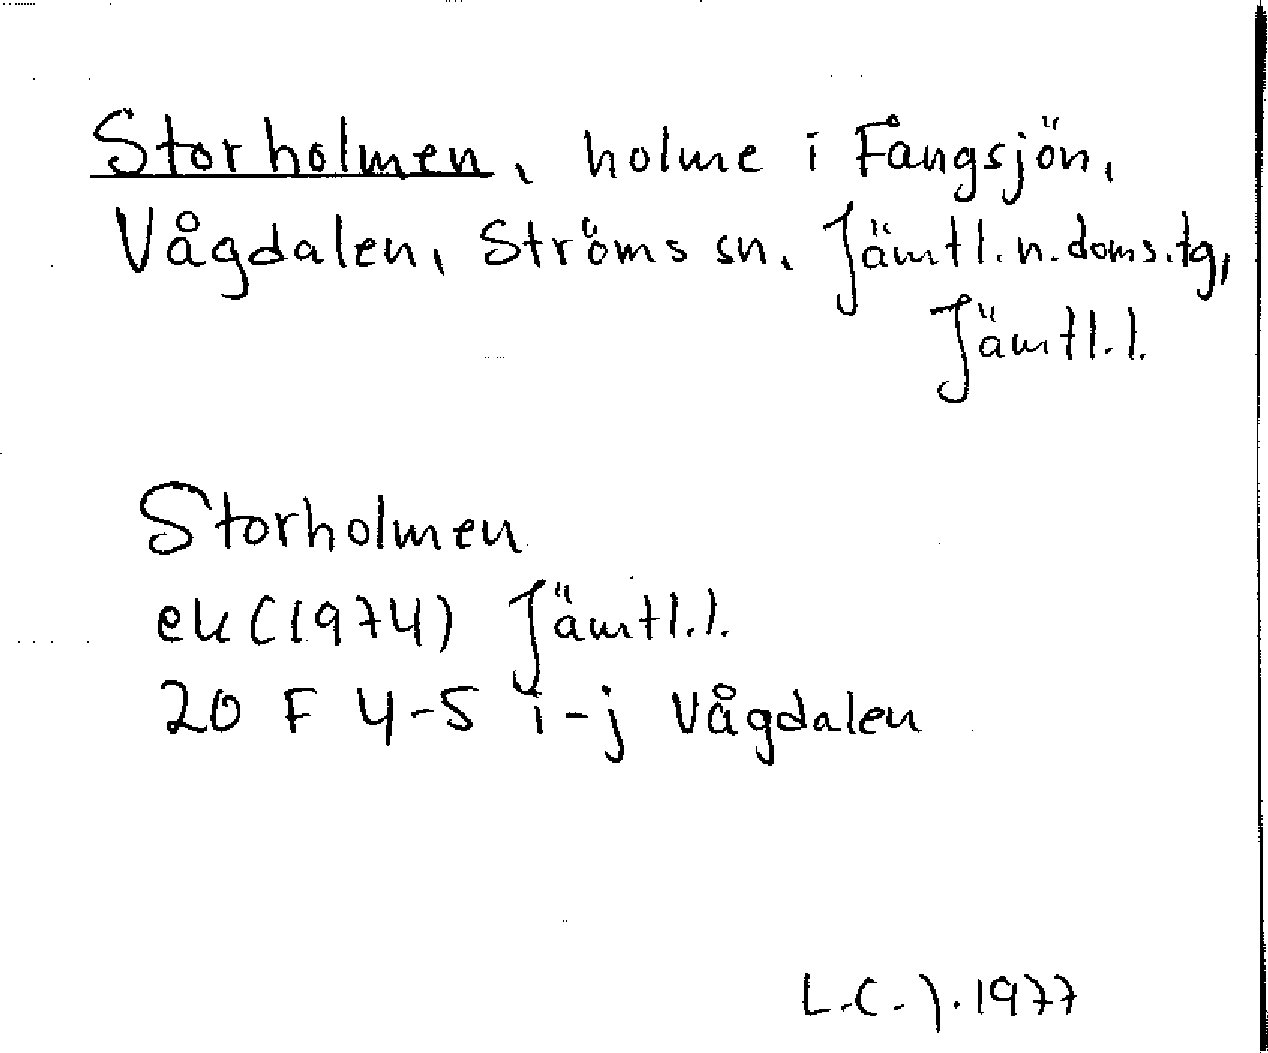 Storholmen, holme i Fångsjön,
Vågdalen, Ströms sn, Jämtl.n.doms.tg,
Jämtl.l.
Storholmen
ek (1974) Jämtl.l.
20 F 4-5 i-j Vågdalen
L.C.J.1977